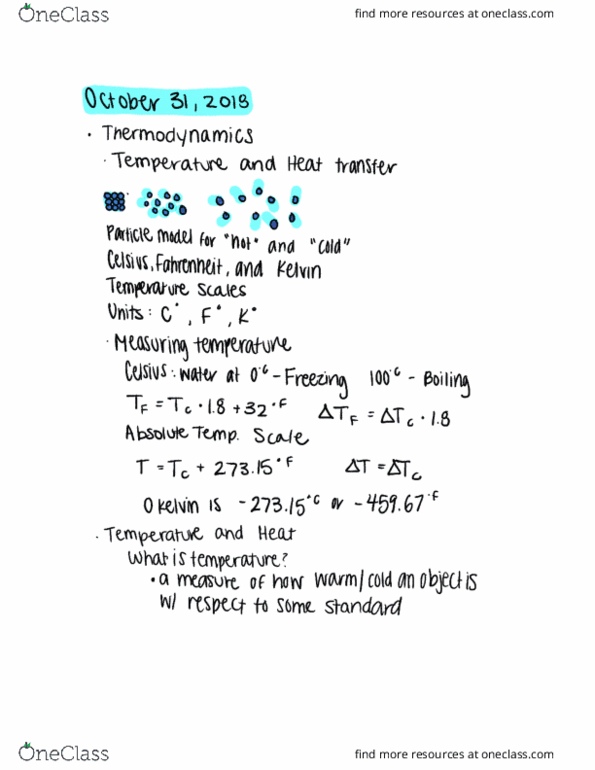 OneClass find more resources at oneclass.com
October 31, 2018
• Thermodynamics
• Temperature and Heat transfer
Particle model for "hot" and "cold"
Celsius, Fahrenheit, and Kelvin
Temperature scales
Units: C°, F°, K°
• Measuring temperature
Celsius: water at 0°C - Freezing 100°C - Boiling
TF = Tc • 1.8 + 32°F ΔTF = ΔTc • 1.8
Absolute Temp. Scale
T = Tc + 273.15°F ΔT = ΔTc
0 kelvin is -273.15°C or -459.67°F
• Temperature and Heat
What is temperature?
• a measure of how warm/cold an object is
w/ respect to some standard
OneClass find more resources at oneclass.com